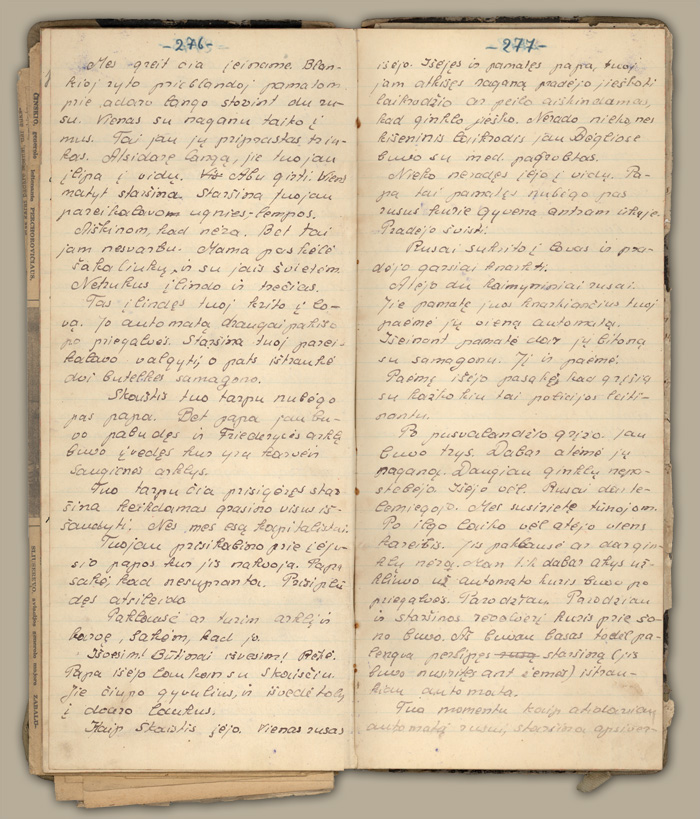 -276-
Mes greit čia įeiname. Blon-
kioj ryto prieblandoj pamatom
prie adaro lango stovint du ru-
su. Vienas su naganu taiko į
mus. Tai jau jų pripрastas triu-
kas. Atsidarę langą, jie tuojau
įlipa į vidų. Abu girti. Viens
matyt staršina. Staršina tuojau
pareikalavom ugnies-lempos.
Aiškinom, kad nėra. Bet tai
jam nesvarbu. Mama paskėlė
šakaliukų, ir su jais švietėm.
Netrukus įlindo ir trečias.
Tas įlindęs tuoj krito į lo-
vą. Jo automatą draugai pakišo
po priegalvės. Staršina tuoj parei-
kalavo valgyti, o pats ištraukė
dvi butelkes samagono.
Skaistis tuo tarpu nubėgo
pas papa. Bet papa jau bu-
vo pabudęs ir Friedrychės arklį
buvo įvedęs kur yra karvėn
saugienės arklys.
Tuo tarpu čia prisigėręs star
šina keikdamas grasino visus iš-
šaudyti. Nes mes esą kapitalistai.
Tuojau prisikabino prie įėju-
sio papos kur jis nakvoja. Papa
sakėj kad nesupranta. Prisiplū
dęs atsileido
Paklausė ar turim arklį ir
karvę, sakėm, kad jo.
Išvesim! Būtinai išvesim! Rėkė.
Papa išėjo laukan su Skaisčiu.
Jie čiupo gyvulius, ir išvedė toly
į daro laukus.
Kaip Skaistis įėjo. Vienas rusas
-277-
išėjo. Išėjęs ir pamatęs papa, tuoj
jam atkišęs naganą pradėjo ješkoti
laikrodžio ar peilio aiškindamas,
kad ginklo ješko. Nerado nieko, nes
kišeninis laikrodis jau Degliose
buvo su med. pagrobtas.
Nieko neradęs įėjo į vidų. Pa-
pa tai pamatęs nubėgo pas
rusus kurie gyvena antram ūkyje.
Pradėjo švisti.
Rusai sukrito į lovas ir pra-
dėjo garsiai knarkti.
Atėjo du kaimyniniai rusai.
Jie pamatę juos knarkiančius tuoj
paėmė jų vieną automatą.
Išeinant pamatė dar jų bitoną
su samagonu. Jį ir paėmė.
Paėmę išėjo pasakę, kad grešią
su kažkokiu tai policijos leiti-
nantu.
Po pusvalandžio grįžo. Jau
buvo trys. Dabar atėmė jų
naganą. Daugiau ginklų nepa-
stebėjo. Išėjo vėl. Rusai dar te-
bemiegojo. Mes susirietę tūnojom.
Po ilgo laiko vėl atėjo viens
kareibis. Jis paklausė ar dar gin-
klų nėra. Man tik dabar akys už-
kliuvo už automato kuris buvo po
priegalvės. Parodžiau. Parodžiau
ir staršinos revolverį kuris prie šo-
no buvo. Aš buvau basas todėl pa-
lengva perlipęs staršiną (jis
buvo nusiritęs ant žemės) ištrau-
kiau automatą.
Tuo momentu kaip atidaviau
automatą rusui, staršina apsiver-